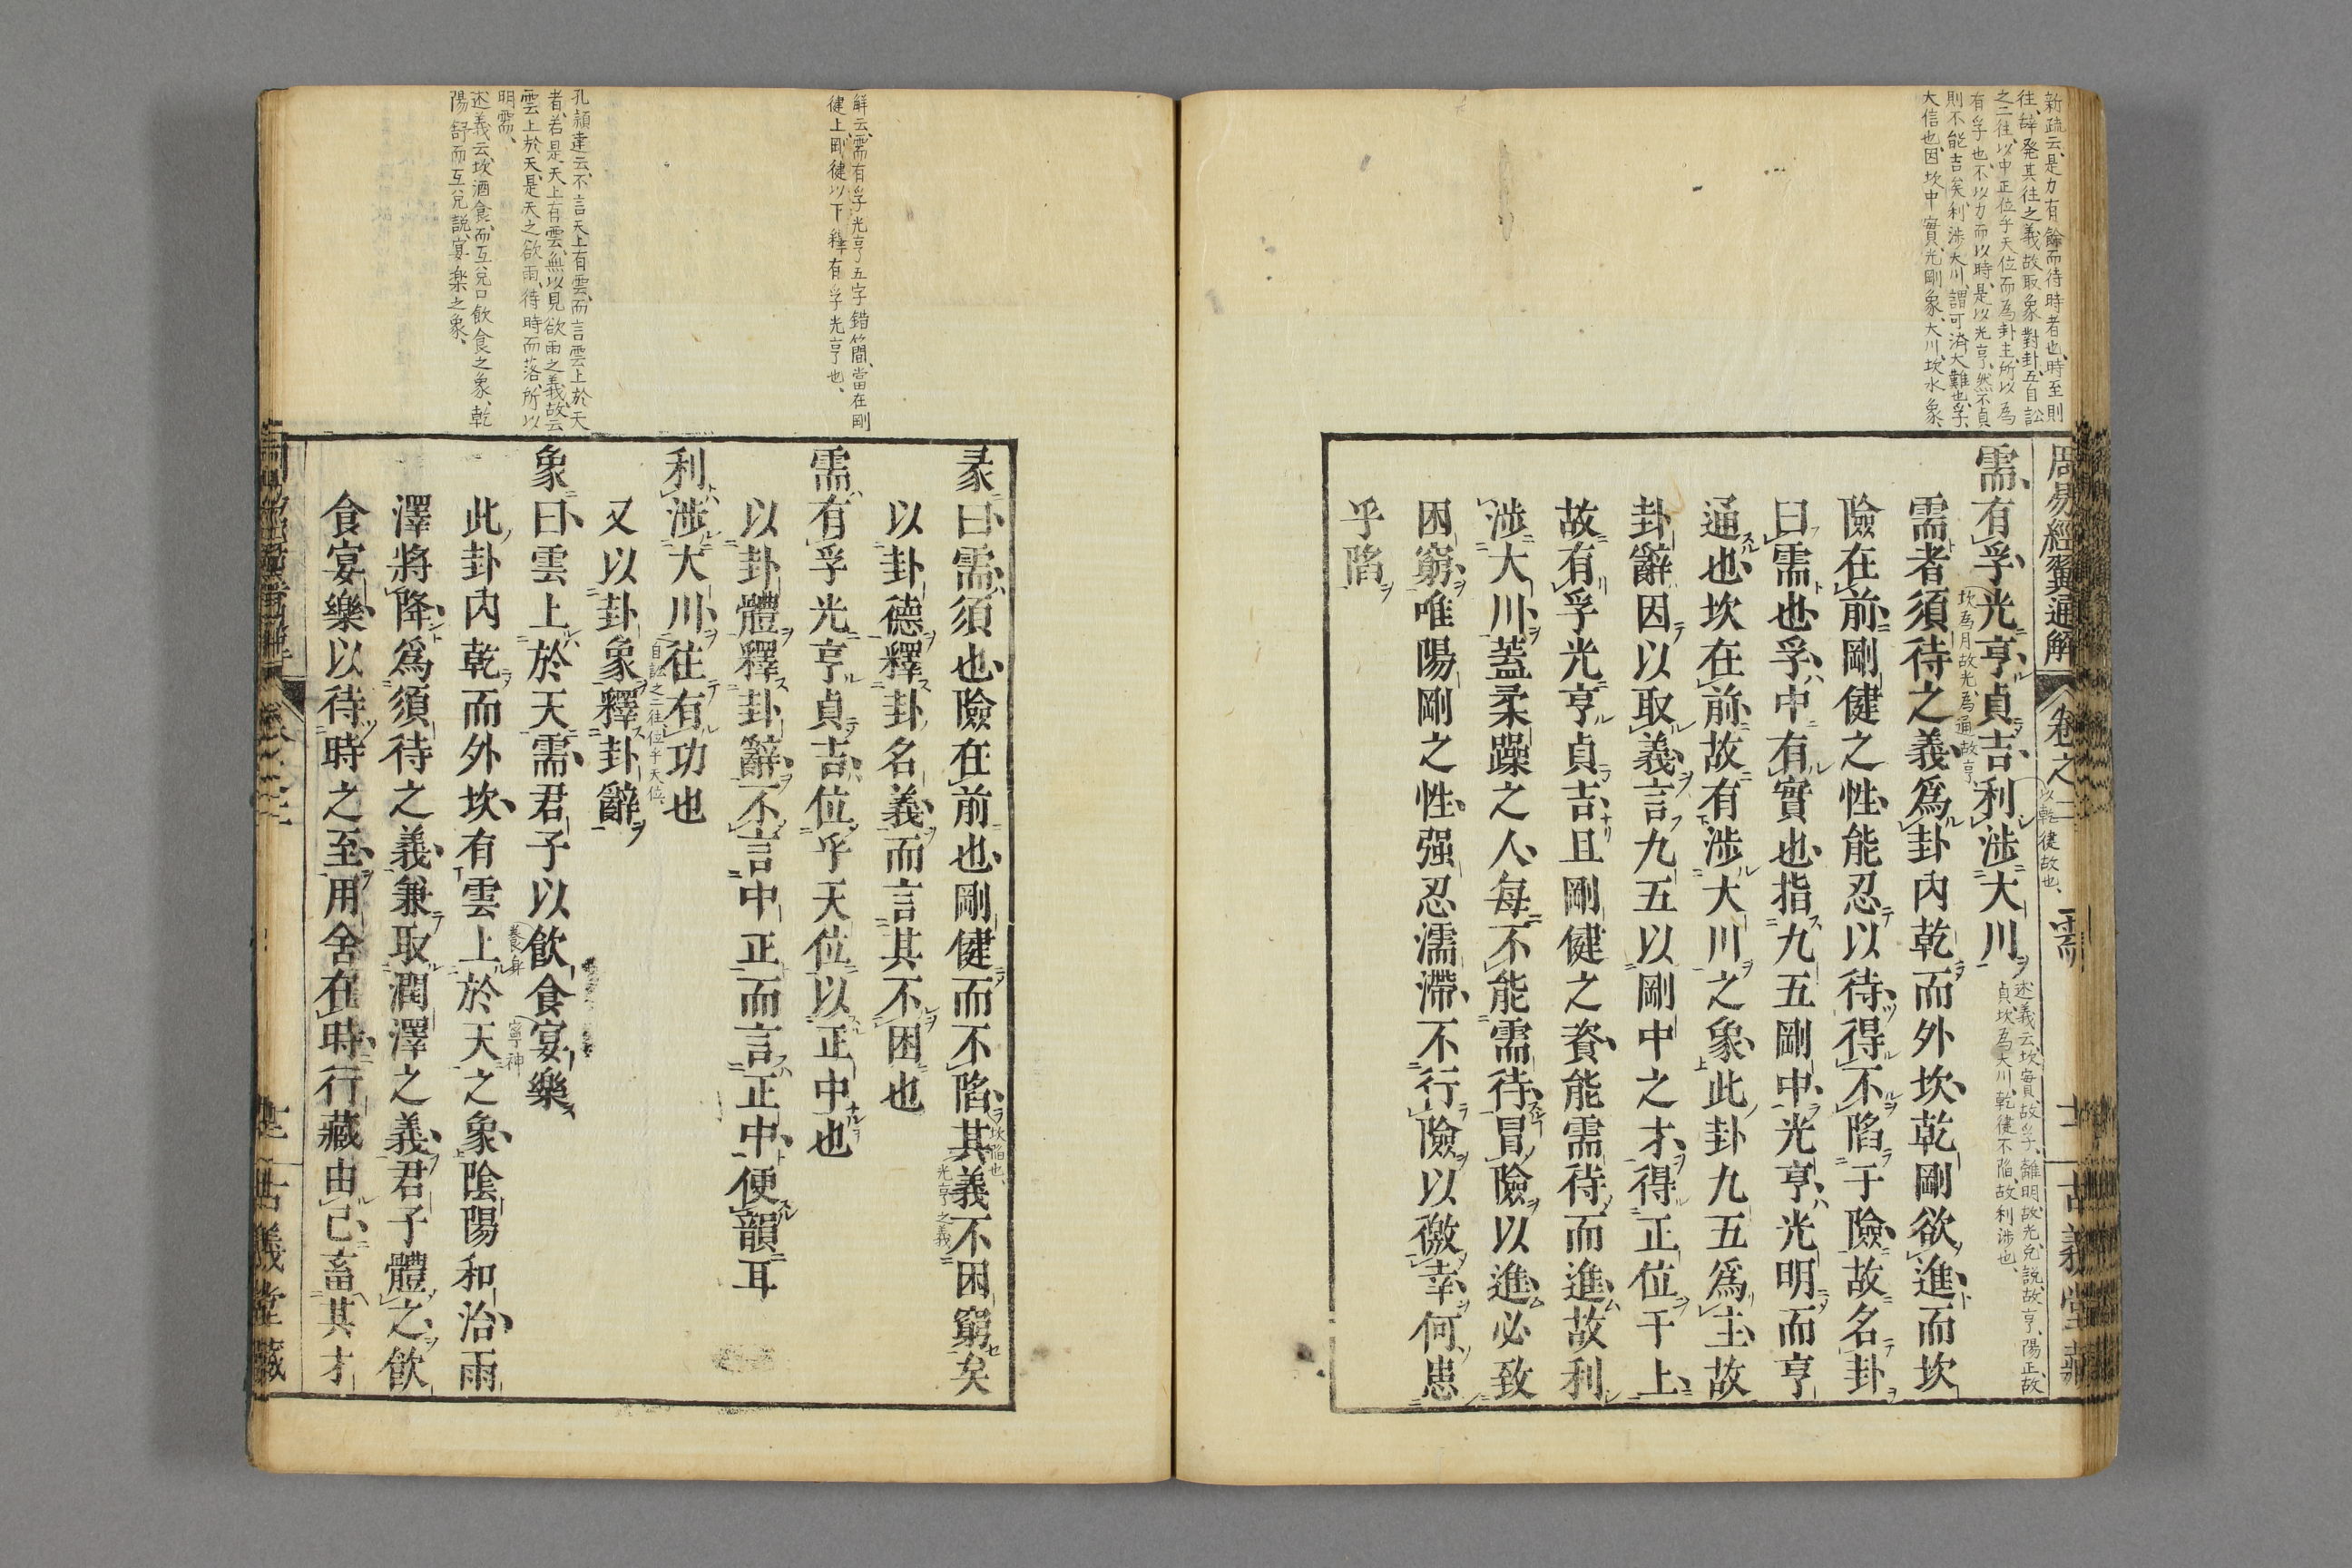 新疏云、是力有餘而待時者也、時至則
往、辞発其往之義、故取象對卦、五自訟
之二往、以中正位乎天位而為卦主、所以為
有孚也、不以力而以時、是以光亨、然不貞
則不能吉矣、利涉大川、謂可済大難也、孚、
大信也、因坎中實、光剛象、大川、坎水象、
周易經翼通解
卷之二
需
古義堂藏
需有孚光亨貞吉利涉大川
坎為月故光、為通故亨
以乾健故也、
述義云、坎實、故孚、離明、故光、兌説、故亨、陽正、故
貞、坎為大川、乾健不陥、故利涉也、
需者須待之義爲卦内乾而外坎乾剛欲進而坎
險在前剛健之性能忍以待得不陷于險故名卦
曰需也孚中有實也指九五剛中光亨光明而亨
通也坎在前故有涉大川之象此卦九五爲主故
卦辭因以取義言九五以剛中之才得正位于上
故有孚光亨貞吉且剛健之資能需待而進故利
涉大川蓋柔躁之人每不能需待冒險以進必致
困窮唯陽剛之性强忍濡滯不行險以徼幸何患
乎陷
解云、需有孚光亨五字錯簡、當在剛
健上、剛健以下釋有孚光亨也、
孔頴達云、不言天上有雲、而言雲上於天
者、若是天上有雲、無以見欲雨之義、故云
雲上於天、是天之欲雨、待時而落、所以
明需、
述義云、坎酒食、而互兌口飲食之象、乾
陽舒而互兌説、宴楽之象、
彖曰需須也險在前也剛健而不陷其義不困窮矣
坎陥也、
光亨之義
以卦德釋卦名義而言其不困也
需有孚光亨貞吉位乎天位以正中也
以卦體釋卦辭不言中正而言正中便韻耳
利涉大川往有功也
自訟之二往位乎天位、
又以卦象釋卦辭
象曰雲上於天需君子以飮食宴樂
養身
寧神
此卦内乾而外坎有雲上於天之象陰陽和洽雨
澤將降爲須待之義兼取潤澤之義君子體之飮
食宴樂以待時之至用舍在時行藏由己畜其才